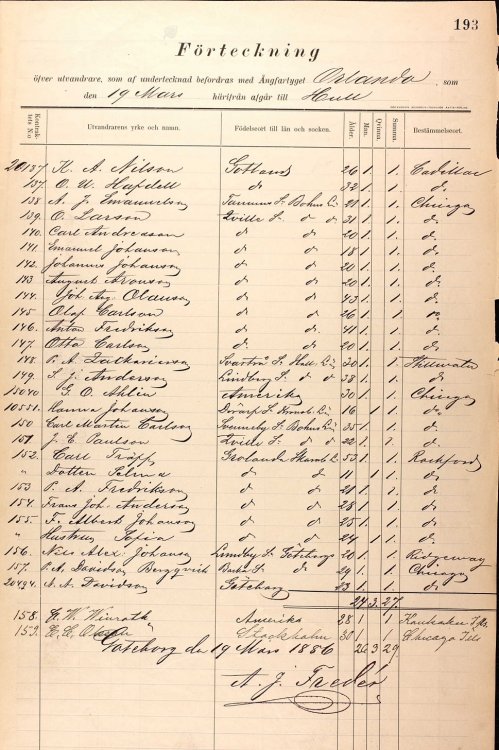 193
Förteckning
öfver utvandrare, som af undertecknad befordras med Ångfartyget Orlando, som
den 19 Mars härifrån afgår till Hull
Kontraktets N:o Utvandrarens yrke och namn. Födelseort till län och socken. Ålder. Man. Qvinna. Summa. Bestämmelseort.
20137 K. A. Nilson Gotland 26 1. 1. Cadillac
137. O. U. 32 1. 1. d:
138 A. J. Emanuelson Tanums S. Bohus L. 21 1. 1. Chicago
139. O. Larson Qville S. d d 31 1. 1. d:
140. Carl Andreasson d d 20 1. 1. d:
141. Emanuel Johanson d d 18 1. 1. d:
142. Johannes Johanson d d 20 1. 1. d:
143 August Aronson d d 20 1. 1. d:
144. Joh. Aug. Olauson d d 43 1. 1. d:
145 Olof Carlson d d 26 1. 1.
146. Anton Fredrikson d d 41 1. 1. d:
147. Otto Carlson d d 20 1. 1. d:
148. P. A. Zachariasson S. Hall. L. 30 1. 1. Stillwater
149. S. J. Anderson Lindberg S. d d 38 1. 1. d:
15040 G. O. Ahlin Amerika 30 1. 1. Chicago
10551. Hanna Johanson S. Kronob. L. 16 1 1. d:
150 Carl Martin Carlson Svenneby S. Bohus L. 35 1. 1. d:
151 J. E. Paulson Qville S. d d 22 1.
152. Carl Grolanda Skarab. L. 53 1. 1. Rockford
" Dotter Selma d d 11 1 1. d:
153 P. A. Fredrikson d d 21 1. 1. d:
154. Frans Joh. Anderson d d 28 1. 1. d:
155. F. Albert Johanson d d 25 1. 1. d:
" Hustru Sofia d d 24 1 1. d:
156. Nils Alex. Johanson Lundby S. Göteborgs 20 1. 1. Ridgeway
157. P. A. Davidson Bergqvist S. d 29 1. 1. Chicago
20494. A. A. Davidson Göteborg 23 1. 1. d:
24. 3. 27.
158. H. W. Winroth Amerika 28 1. 1 Kankakee
159. Stockholm 30 1. 1. Chicago Ills
26 3 29
Göteborg den 19 Mars 1886
A. J. Freder